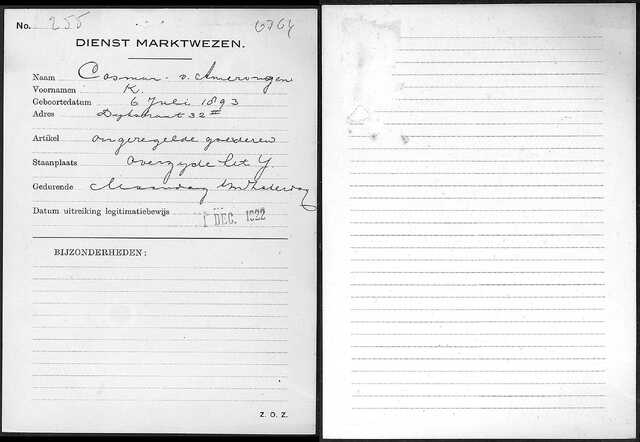 No. 255 6764
DIENST MARKTWEZEN.
Naam Cosman - v. Amerongen
Voornamen K.
Geboortedatum 6 Juli 1893
Adres 32 II
Artikel ongeregelde goederen
Staanplaats Overzyde het Y.
Gedurende Maandag t/m Zaterdag
Datum uitreiking legitimatiebewijs 1 DEC. 1922
BIJZONDERHEDEN:
Z. O. Z.